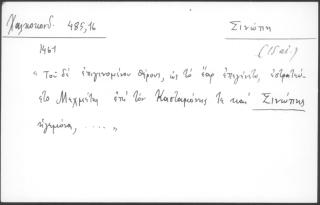 Χαλκοκονδ. 485,16 Σινώπη
1461 (Ισαΐ)
« Τοῦ δὲ ἐπιγινομένου θέρους, ὡς τὸ ἔαρ ἐπεγένετο, ἐστρατεύ-
ετο Μεχμέτης ἐπὶ τὸν Κασταμώνης τε καὶ Σινώπης
ἡγεμόνα, .... »